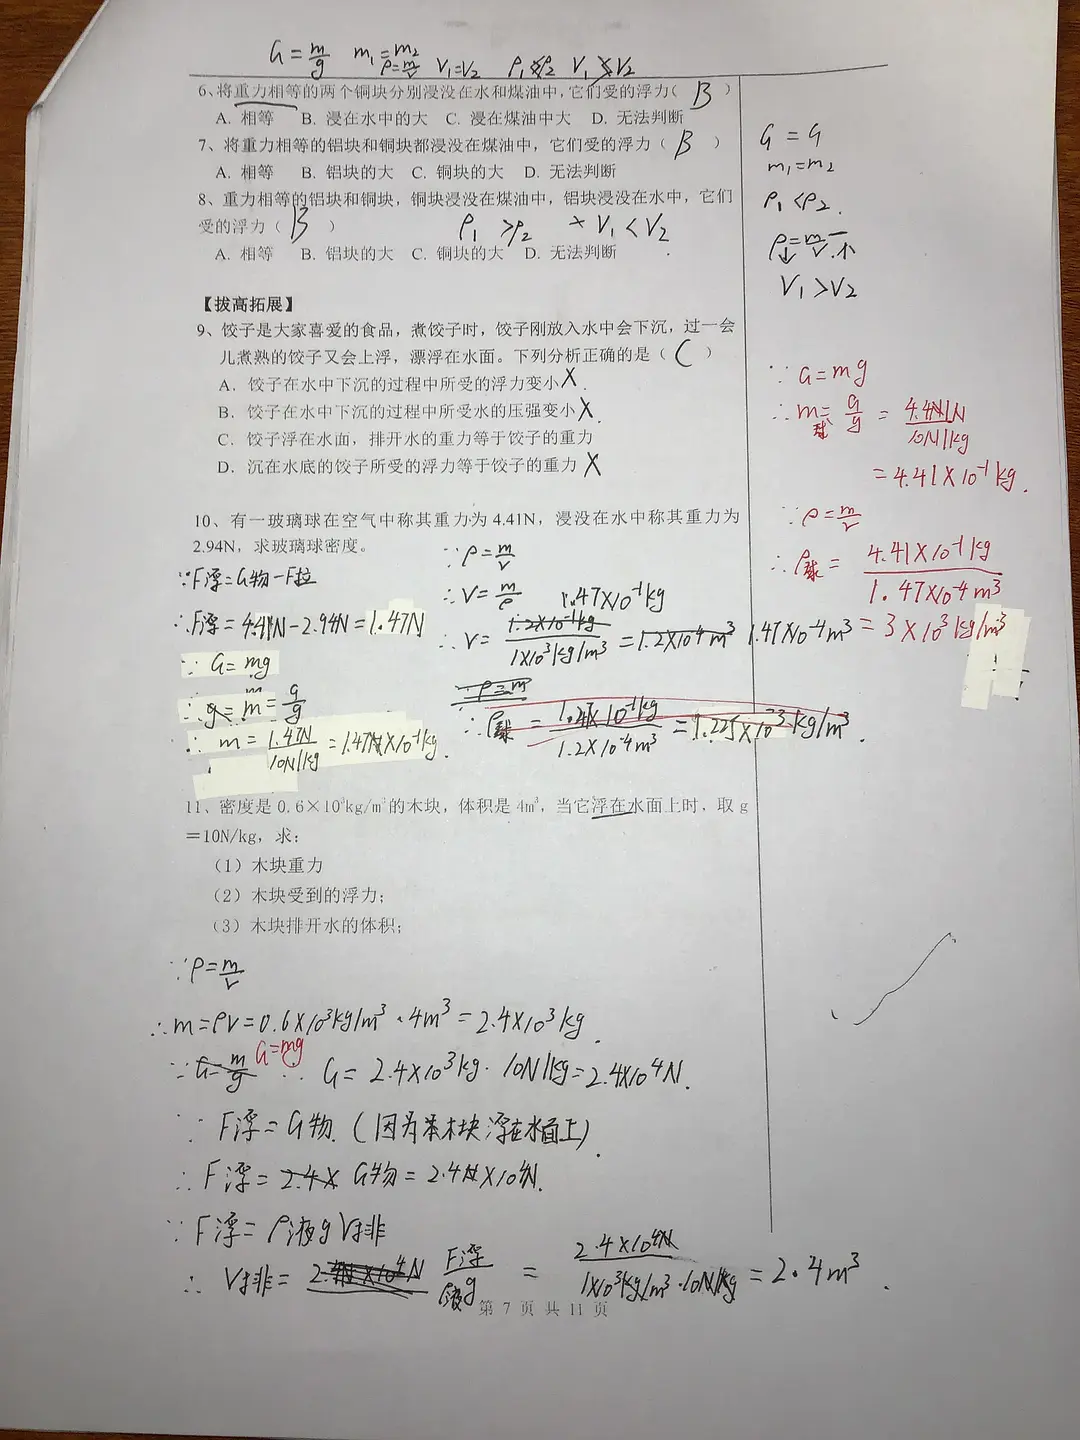 G=m/g m₁=m₂ ρ=m/v V₁=V₂ V₁ V₂
6、将重力相等的两个铜块分别浸没在水和煤油中,它们受的浮力( B )
A. 相等 B. 浸在水中的大 C. 浸在煤油中大 D. 无法判断
7、将重力相等的铝块和铜块都浸没在煤油中，它们受的浮力( B )
A. 相等 B. 铝块的大 C. 铜块的大 D. 无法判断
8、重力相等的铝块和铜块，铜块浸没在煤油中，铝块浸没在水中，它们
受的浮力( B ) ρ₁>ρ₂ V₁<V₂
A. 相等 B. 铝块的大 C. 铜块的大 D. 无法判断
G=G
m₁=m₂
ρ₁<ρ₂.
ρ↓=m/v
V₁>V₂
【拔高拓展】
9、饺子是大家喜爱的食品，煮饺子时，饺子刚放入水中会下沉，过一会
儿煮熟的饺子又会上浮，漂浮在水面。下列分析正确的是( C )
A. 饺子在水中下沉的过程中所受的浮力变小 X
B. 饺子在水中下沉的过程中所受水的压强变小 X
C. 饺子浮在水面，排开水的重力等于饺子的重力
D. 沉在水底的饺子所受的浮力等于饺子的重力 X
10、有一玻璃球在空气中称其重力为 4.41N，浸没在水中称其重力为
2.94N，求玻璃球密度。
∵F浮=G物-F拉
∴F浮=4.41N-2.94N=1.47N
∵G=mg
∴m=G/g
∴m=1.47N/10N/kg=1.47×10⁻¹kg.
∵ρ=m/v
∴V=m/ρ
∴V=1.47×10⁻¹kg/1×10³kg/m³=1.2×10⁻⁴m³ 1.47×10⁻⁴m³
∵ρ=m
∴ρ球=1.47×10⁻¹kg/1.2×10⁻⁴m³=1.225×10³kg/m³.
∵G=mg
∴m球=G/g=4.41N/10N/kg
=4.41×10⁻¹kg.
∵ρ=m/v
∴ρ球=4.41×10⁻¹kg/1.47×10⁻⁴m³
=3×10³kg/m³
11、密度是 0.6×10³kg/m³的木块，体积是 4m³，当它浮在水面上时，取 g
=10N/kg，求：
(1) 木块重力
(2) 木块受到的浮力；
(3) 木块排开水的体积；
∵ρ=m/v
∴m=ρv=0.6×10³kg/m³·4m³=2.4×10³kg.
∵G=m/g G=mg ∴G=2.4×10³kg·10N/kg=2.4×10⁴N.
∵F浮=G物.(因为木块浮在水面上).
∴F浮=2.4× G物=2.4×10⁴N.
∵F浮=ρ液gV排
∴V排=2.4N×10⁴N F浮/ρ液g=2.4×10⁴N/1×10³kg/m³·10N/kg=2.4m³.
第 7 页 共 11 页